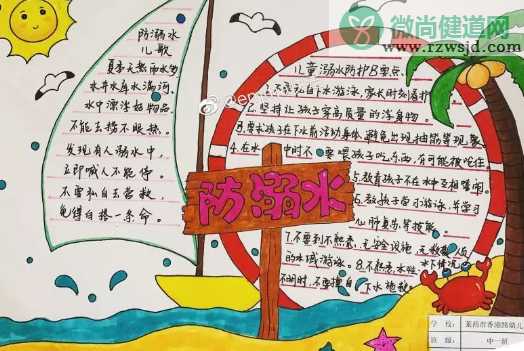 防溺水
儿歌
夏季天热雨水多
水井水库水满河
水中漂浮好物品
不能去捞不眼热
发现有人溺水中
立即喊人不能停
不要私自去营救
免得白搭一条命
儿童溺水防护8要点
1.不能私自下水游泳,家长时刻看护
2.坚持让孩子穿高质量的浮身物
3.要求孩子在下水前活动身体,避免出现抽筋等现象
4.在水中时不要喂孩子吃东西,有可能被呛住
5.教育孩子不在水中互相嬉闹
6.教孩子学习游泳,并学习
心肺复苏等技能
7.不要到不熟悉,无安全设施,无救援人员
的水域游泳。8.不熟悉水性,水下情况
不明时,不要擅自下水施救
防溺水
微尚健道网
www.rzwsjd.com
学校:莱西市香港路幼儿
班级:中一班